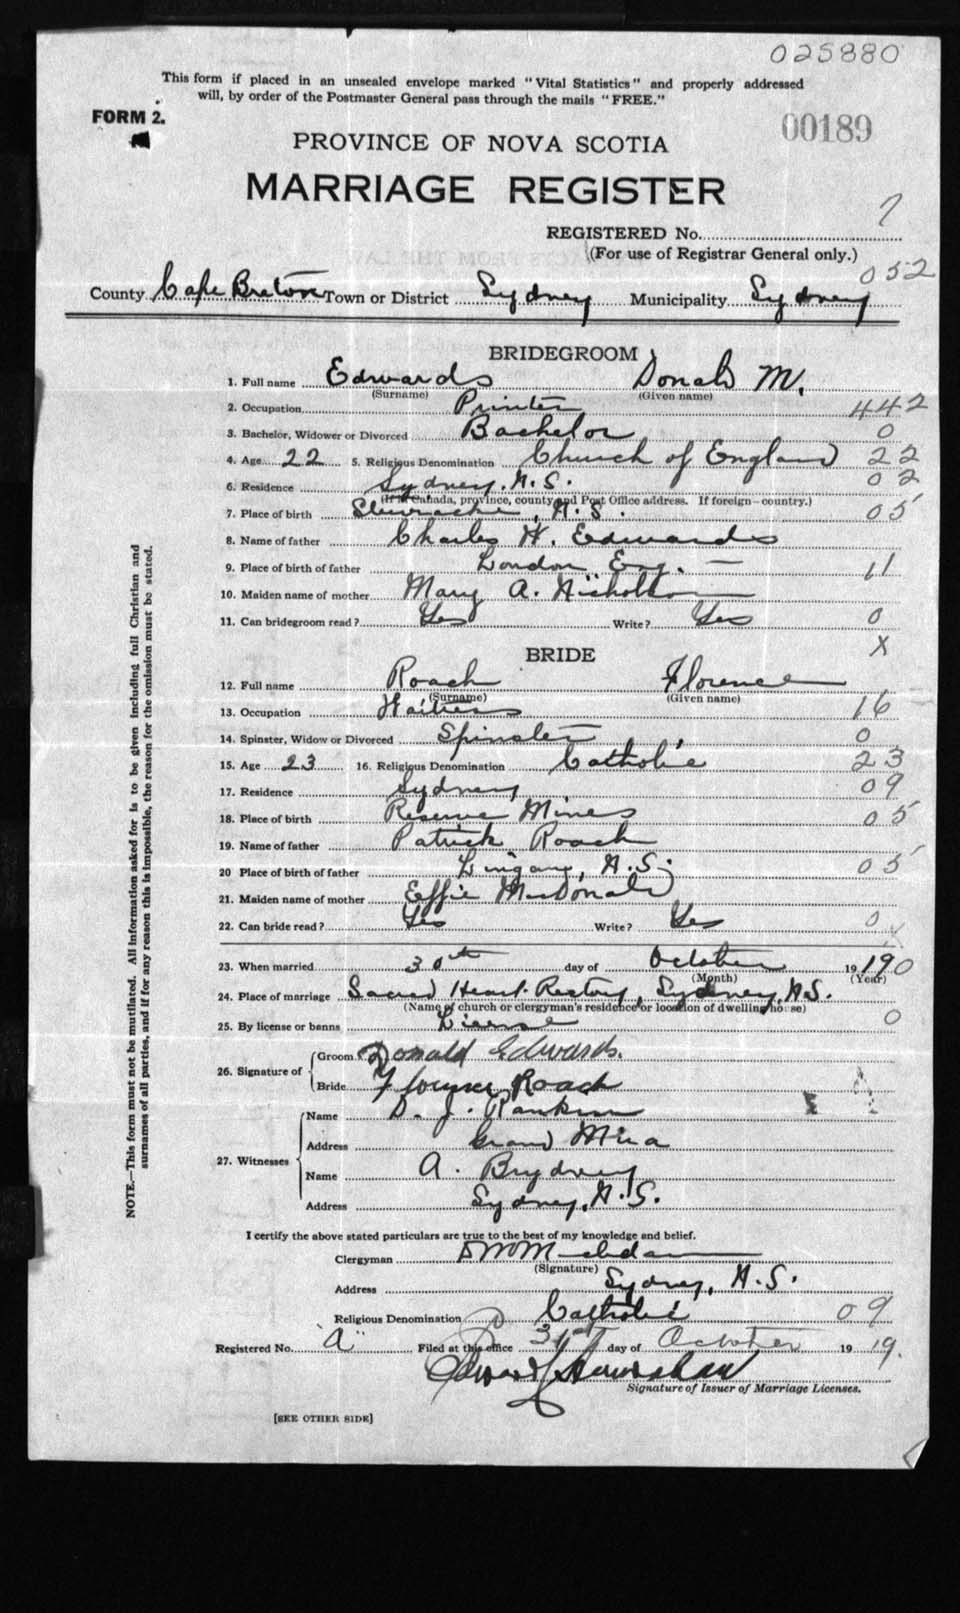 025880
This form if placed in an unsealed envelope marked "Vital Statistics" and properly addressed
will, by order of the Postmaster General pass through the mails "FREE."
FORM 2.
00189
PROVINCE OF NOVA SCOTIA
MARRIAGE REGISTER
7
REGISTERED No.
(For use of Registrar General only.)
052
County Cape Breton Town or District Sydney Municipality Sydney
BRIDEGROOM
1. Full name Edwards Donald M.
(Surname) (Given name)
2. Occupation Printer 442
3. Bachelor, Widower or Divorced Bachelor 0
4. Age 22 5. Religious Denomination Church of England 22
6. Residence Sydney, N.S. 02
(If in Canada, province, county and Post Office address. If foreign—country.)
7. Place of birth N.S. 05
8. Name of father Charles H. Edwards
9. Place of birth of father London Eng. — 11
10. Maiden name of mother Mary A. Nicholson
11. Can bridegroom read? Yes Write? Yes 0
X
BRIDE
12. Full name Roach Florence
(Surname) (Given name)
13. Occupation Waitress 16
14. Spinster, Widow or Divorced Spinster 0
15. Age 23 16. Religious Denomination Catholic 23
17. Residence Sydney 09
18. Place of birth Reserve Mines 05
19. Name of father Patrick Roach
20 Place of birth of father Lingan, N.S. 05
21. Maiden name of mother Effie MacDonald
22. Can bride read? Yes Write? Yes 0
X
23. When married 30th day of October 1919 0
(Month) (Year)
24. Place of marriage Sacred Heart Rectory, Sydney, N.S.
(Name of church or clergyman's residence or location of dwelling house)
25. By license or banns License 0
26. Signature of Groom Donald Edwards.
Bride Florence Roach
27. Witnesses Name D. J. Rankin
Address Grand Mira
Name A.
Address Sydney, N.S.
I certify the above stated particulars are true to the best of my knowledge and belief.
Clergyman
(Signature)
Address Sydney, N.S.
Religious Denomination Catholic 09
Registered No. "A" Filed at this office 31st day of October 1919.
Edward
Signature of Issuer of Marriage Licenses.
[SEE OTHER SIDE]
NOTE.—This form must not be mutilated. All information asked for is to be given including full Christian and
surnames of all parties, and if for any reason this is impossible, the reason for the omission must be stated.